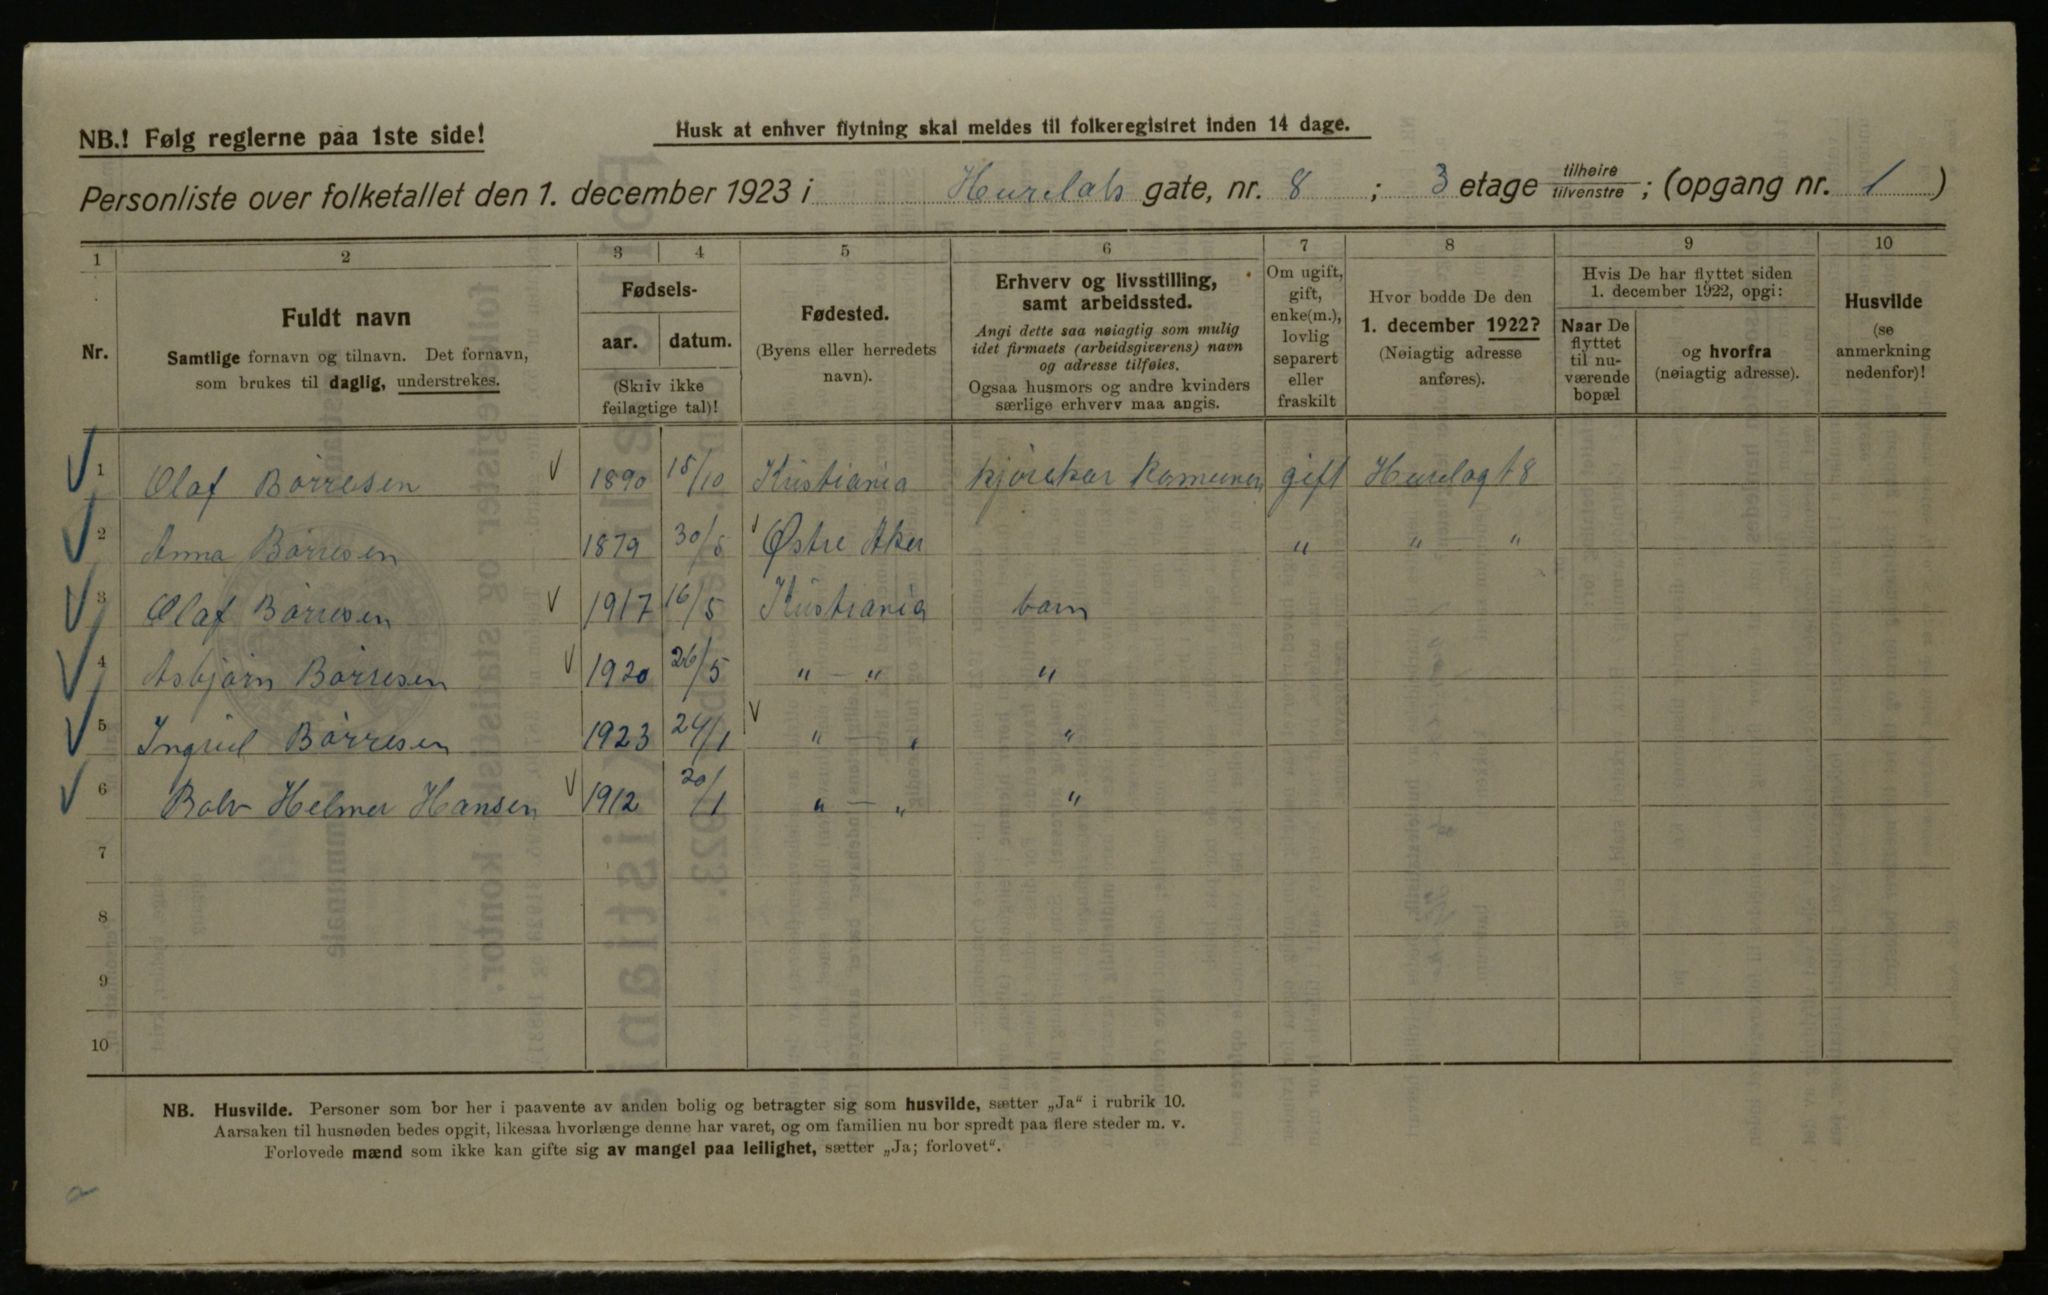 NB.! Følg reglerne paa 1ste side!
Husk at enhver flytning skal meldes til folkeregistret inden 14 dage.
Personliste over folketallet den 1. december 1923 i Hurdals gate, nr. 8; 3 etage tilhøire tilvenstre; (opgang nr. 1)
1 2 3 4 5 6 7 8 9 10
Nr.
Fuldt navn
Samtlige fornavn og tilnavn. Det fornavn,
som brukes til daglig, understrekes.
Fødsels-
aar. datum.
(Skriv ikke
feilagtige tal)!
Fødested.
(Byens eller herredets
navn).
Erhverv og livsstilling,
samt arbeidssted.
Angi dette saa nøiagtig som mulig
idet firmaets (arbeidsgiverens) navn
og adresse tilføies.
Ogsaa husmors og andre kvinders
særlige erhverv maa angis.
Om ugift,
gift,
enke(m.),
lovlig
separert
eller
fraskilt
Hvor bodde De den
1. december 1922?
(Nøiagtig adresse
anføres).
Hvis De har flyttet siden
1. december 1922, opgi:
Naar De
flyttet
til nu-
værende
bopæl
og hvorfra
(nøiagtig adresse).
Husvilde
(se
anmerkning
nedenfor)!
1 Olaf Børresen 1890 15/10 Kristiania kjørekar gift 8
2 Anna Børresen 1879 30/5 Østre Aker " " "
3 Olaf Børresen 1917 16/5 Kristiania barn
4 Asbjørn Børresen 1920 26/5 " — " "
5 Ingrid Børresen 1923 24/1 " — " "
6 Rolv Helmer Hansen 1912 20/1 " — " "
7
8
9
10
NB. Husvilde. Personer som bor her i paavente av anden bolig og betragter sig som husvilde, sætter „Ja" i rubrik 10.
Aarsaken til husnøden bedes opgit, likesaa hvorlænge denne har varet, og om familien nu bor spredt paa flere steder m. v.
Forlovede mænd som ikke kan gifte sig av mangel paa leilighet, sætter „Ja; forlovet".